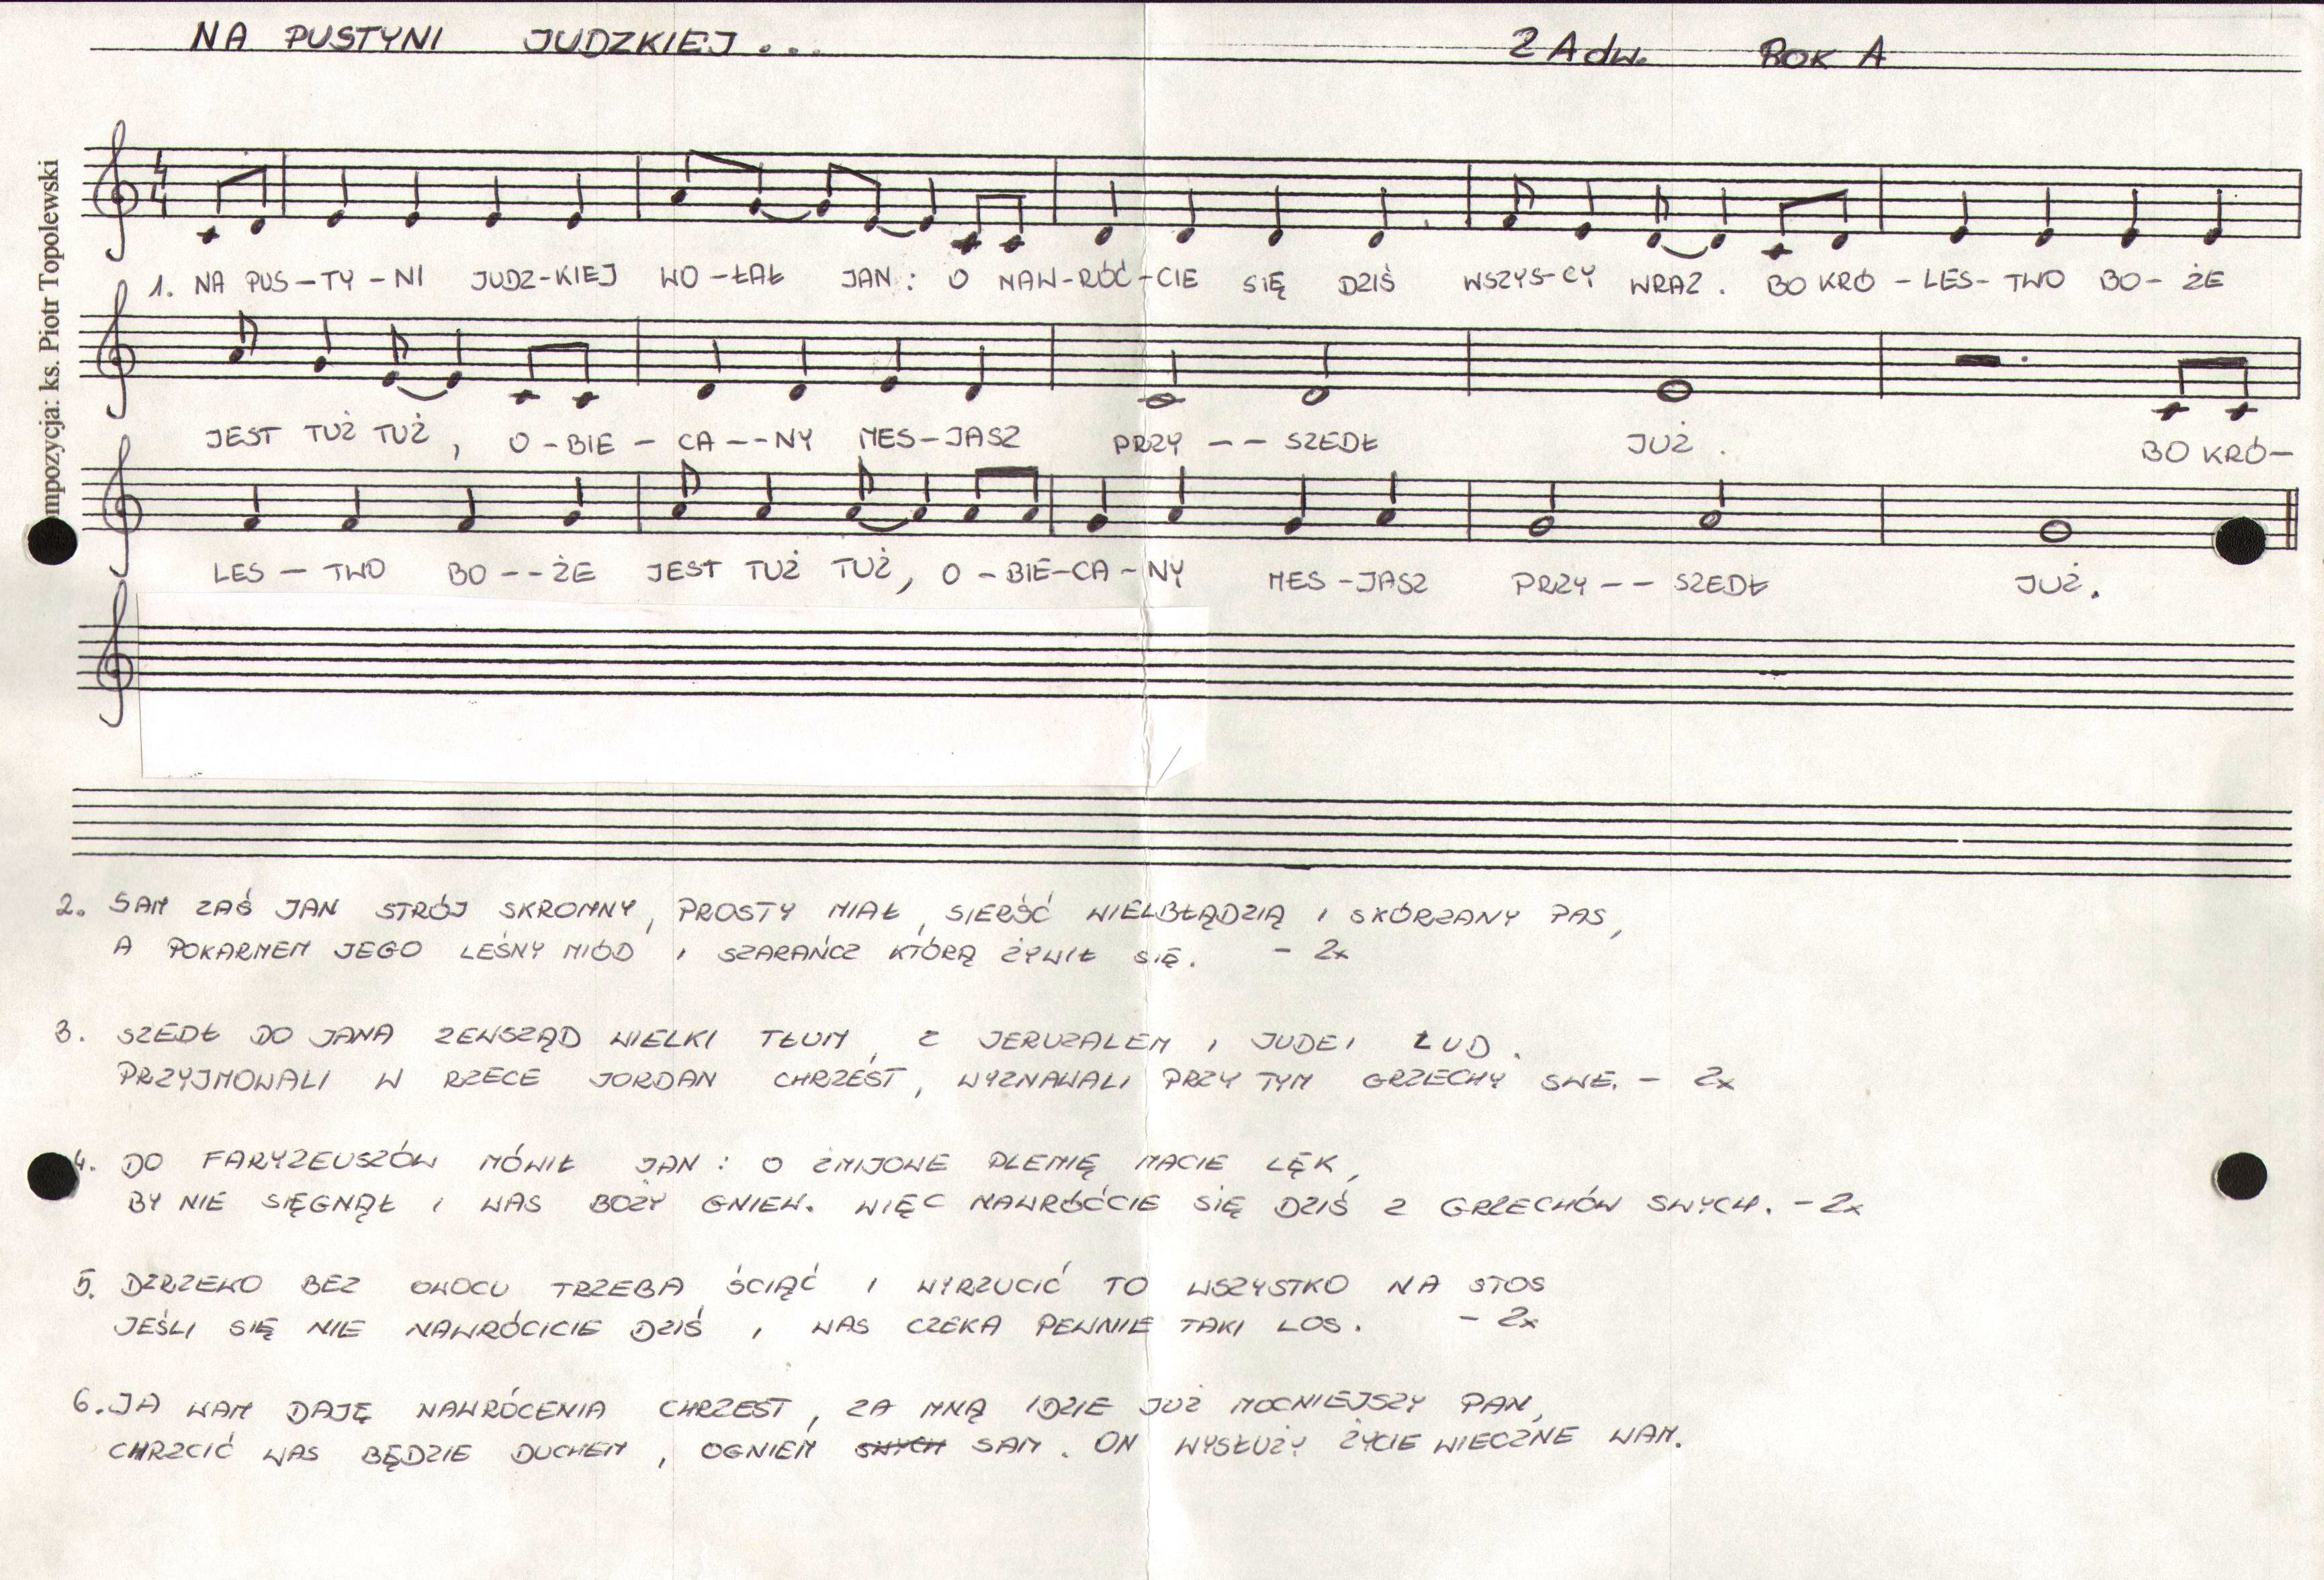 NA PUSTYNI JUDZKIEJ... 2 Adw. ROK A
mpozycja: ks. Piotr Topolewski
1. NA PUS-TY-NI JUDZ-KIEJ WO-ŁAŁ JAN: O NAW-RÓĆ-CIE SIĘ DZIŚ WSZYS-CY WRAZ. BO KRÓ-LES-TWO BO-ŻE
JEST TUŻ TUŻ, O-BIE-CA--NY MES-JASZ PRZY--SZEDŁ JUŻ. BO KRÓ-
LES-TWO BO--ŻE JEST TUŻ TUŻ, O-BIE-CA-NY MES-JASZ PRZY--SZEDŁ JUŻ.
2. SAM ZAŚ JAN STRÓJ SKROMNY, PROSTY MIAŁ, SIERŚĆ WIELBŁĄDZIĄ I SKÓRZANY PAS,
A POKARMEM JEGO LEŚNY MIÓD I SZARAŃCZ KTÓRĄ ŻYWIŁ SIĘ. - 2x
3. SZEDŁ DO JANA ZEWSZĄD WIELKI TŁUM, Z JERUZALEM I JUDEI LUD.
PRZYJMOWALI W RZECE JORDAN CHRZEST, WYZNAWALI PRZY TYM GRZECHY SWE. - 2x
4. DO FARYZEUSZÓW MÓWIŁ JAN: O ŻMIJOWE PLEMIĘ MACIE LĘK,
BY NIE SIĘGNĄŁ I WAS BOŻY GNIEW. WIĘC NAWRÓĆCIE SIĘ DZIŚ Z GRZECHÓW SWYCH. - 2x
5. DZRZEWO BEZ OWOCU TRZEBA ŚCIĄĆ I WYRZUCIĆ TO WSZYSTKO NA STOS
JEŚLI SIĘ NIE NAWRÓCICIE DZIŚ, WAS CZEKA PEWNIE TAKI LOS. - 2x
6. JA WAM DAJĘ NAWRÓCENIA CHRZEST, ZA MNĄ IDZIE JUŻ MOCNIEJSZY PAN,
CHRZCIĆ WAS BĘDZIE DUCHEM, OGNIEM SWYCH SAM. ON WYSŁUŻY ŻYCIE WIECZNE WAM.